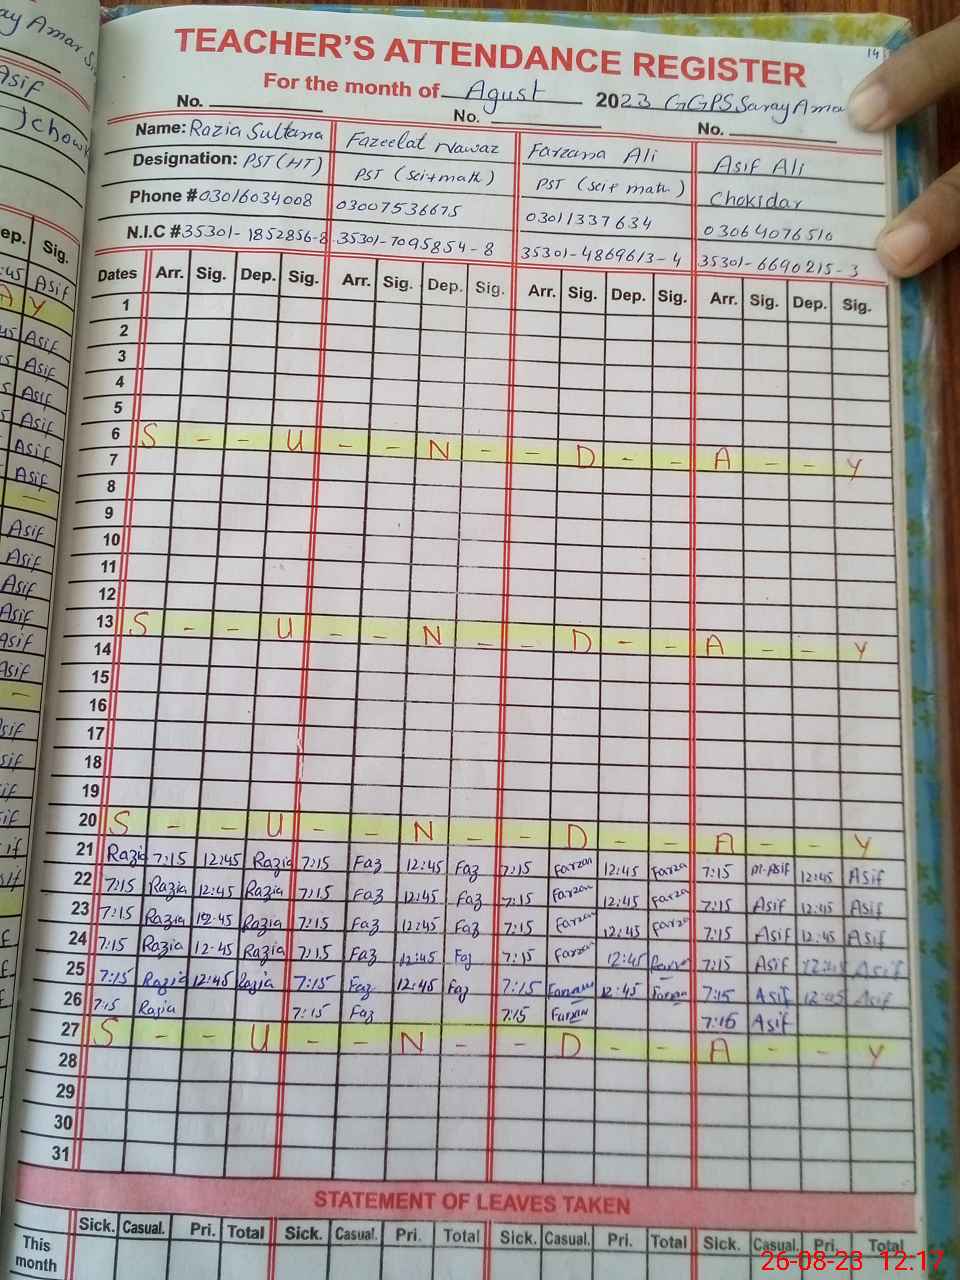 14
TEACHER'S ATTENDANCE REGISTER
For the month of Agust 2023 GGPS, Saray Amar
No. No. No.
Name: Razia Sultana Fazeelat Nawaz Farzana Ali Asif Ali
Designation: PST (HT) PST (sci+math) PST (sci+ math) Chokidar
Phone # 03016034008 03007536675 03011337634 03064076516
N.I.C # 35301-1852856-8 35301-7095854-8 35301-4869613-4 35301-6690215-3
Dates Arr. Sig. Dep. Sig. Arr. Sig. Dep. Sig. Arr. Sig. Dep. Sig. Arr. Sig. Dep. Sig.
1
2
3
4
5
6 S - - U - - N - - D - - A - - Y
7
8
9
10
11
12
13 S - - U - - N - - D - - A - - Y
14
15
16
17
18
19
20 S - - U - - N - - D - - A - - Y
21 Razia 7:15 12:45 Razia 7:15 Faz 12:45 Faz 7:15 Farzan 12:45 Farza 7:15 M-Asif 12:45 Asif
22 7:15 Razia 12:45 Razia 7:15 Faz 12:45 Faz 7:15 Farzan 12:45 Farzan 7:15 Asif 12:45 Asif
23 7:15 Razia 12:45 Razia 7:15 Faz 12:45 Faz 7:15 Farzan 12:45 Farzan 7:15 Asif 12:45 Asif
24 7:15 Razia 12:45 Razia 7:15 Faz 12:45 Faz 7:15 Farzan 12:45 7:15 Asif 12:45 Asif
25 7:15 Razia 12:45 Razia 7:15 Faz 12:45 Faz 7:15 12:45 Farzan 7:15 Asif 12:45 Asif
26 7:15 Razia 7:15 Faz 7:15 Farzan 7:16 Asif
27 S - - U - - N - - D - - A - - Y
28
29
30
31
STATEMENT OF LEAVES TAKEN
Sick. Casual. Pri. Total Sick. Casual. Pri. Total Sick. Casual. Pri. Total Sick. Casual. Pri. Total
This month
26-08-23 12:17